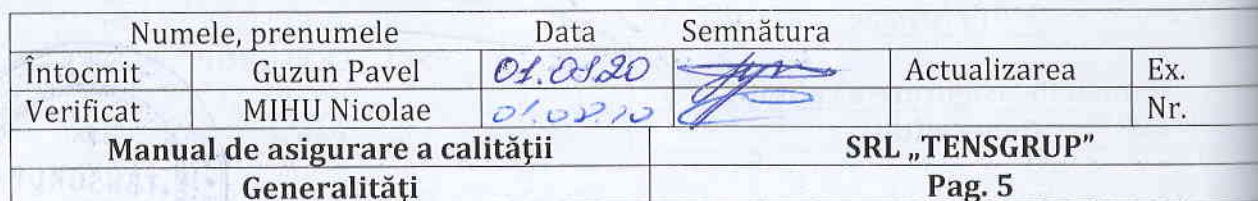 Numele, prenumele Data Semnătura
Întocmit Guzun Pavel Actualizarea Ex.
Verificat MIHU Nicolae Nr.
Manual de asigurare a calității SRL „TENSGRUP”
Generalități Pag. 5